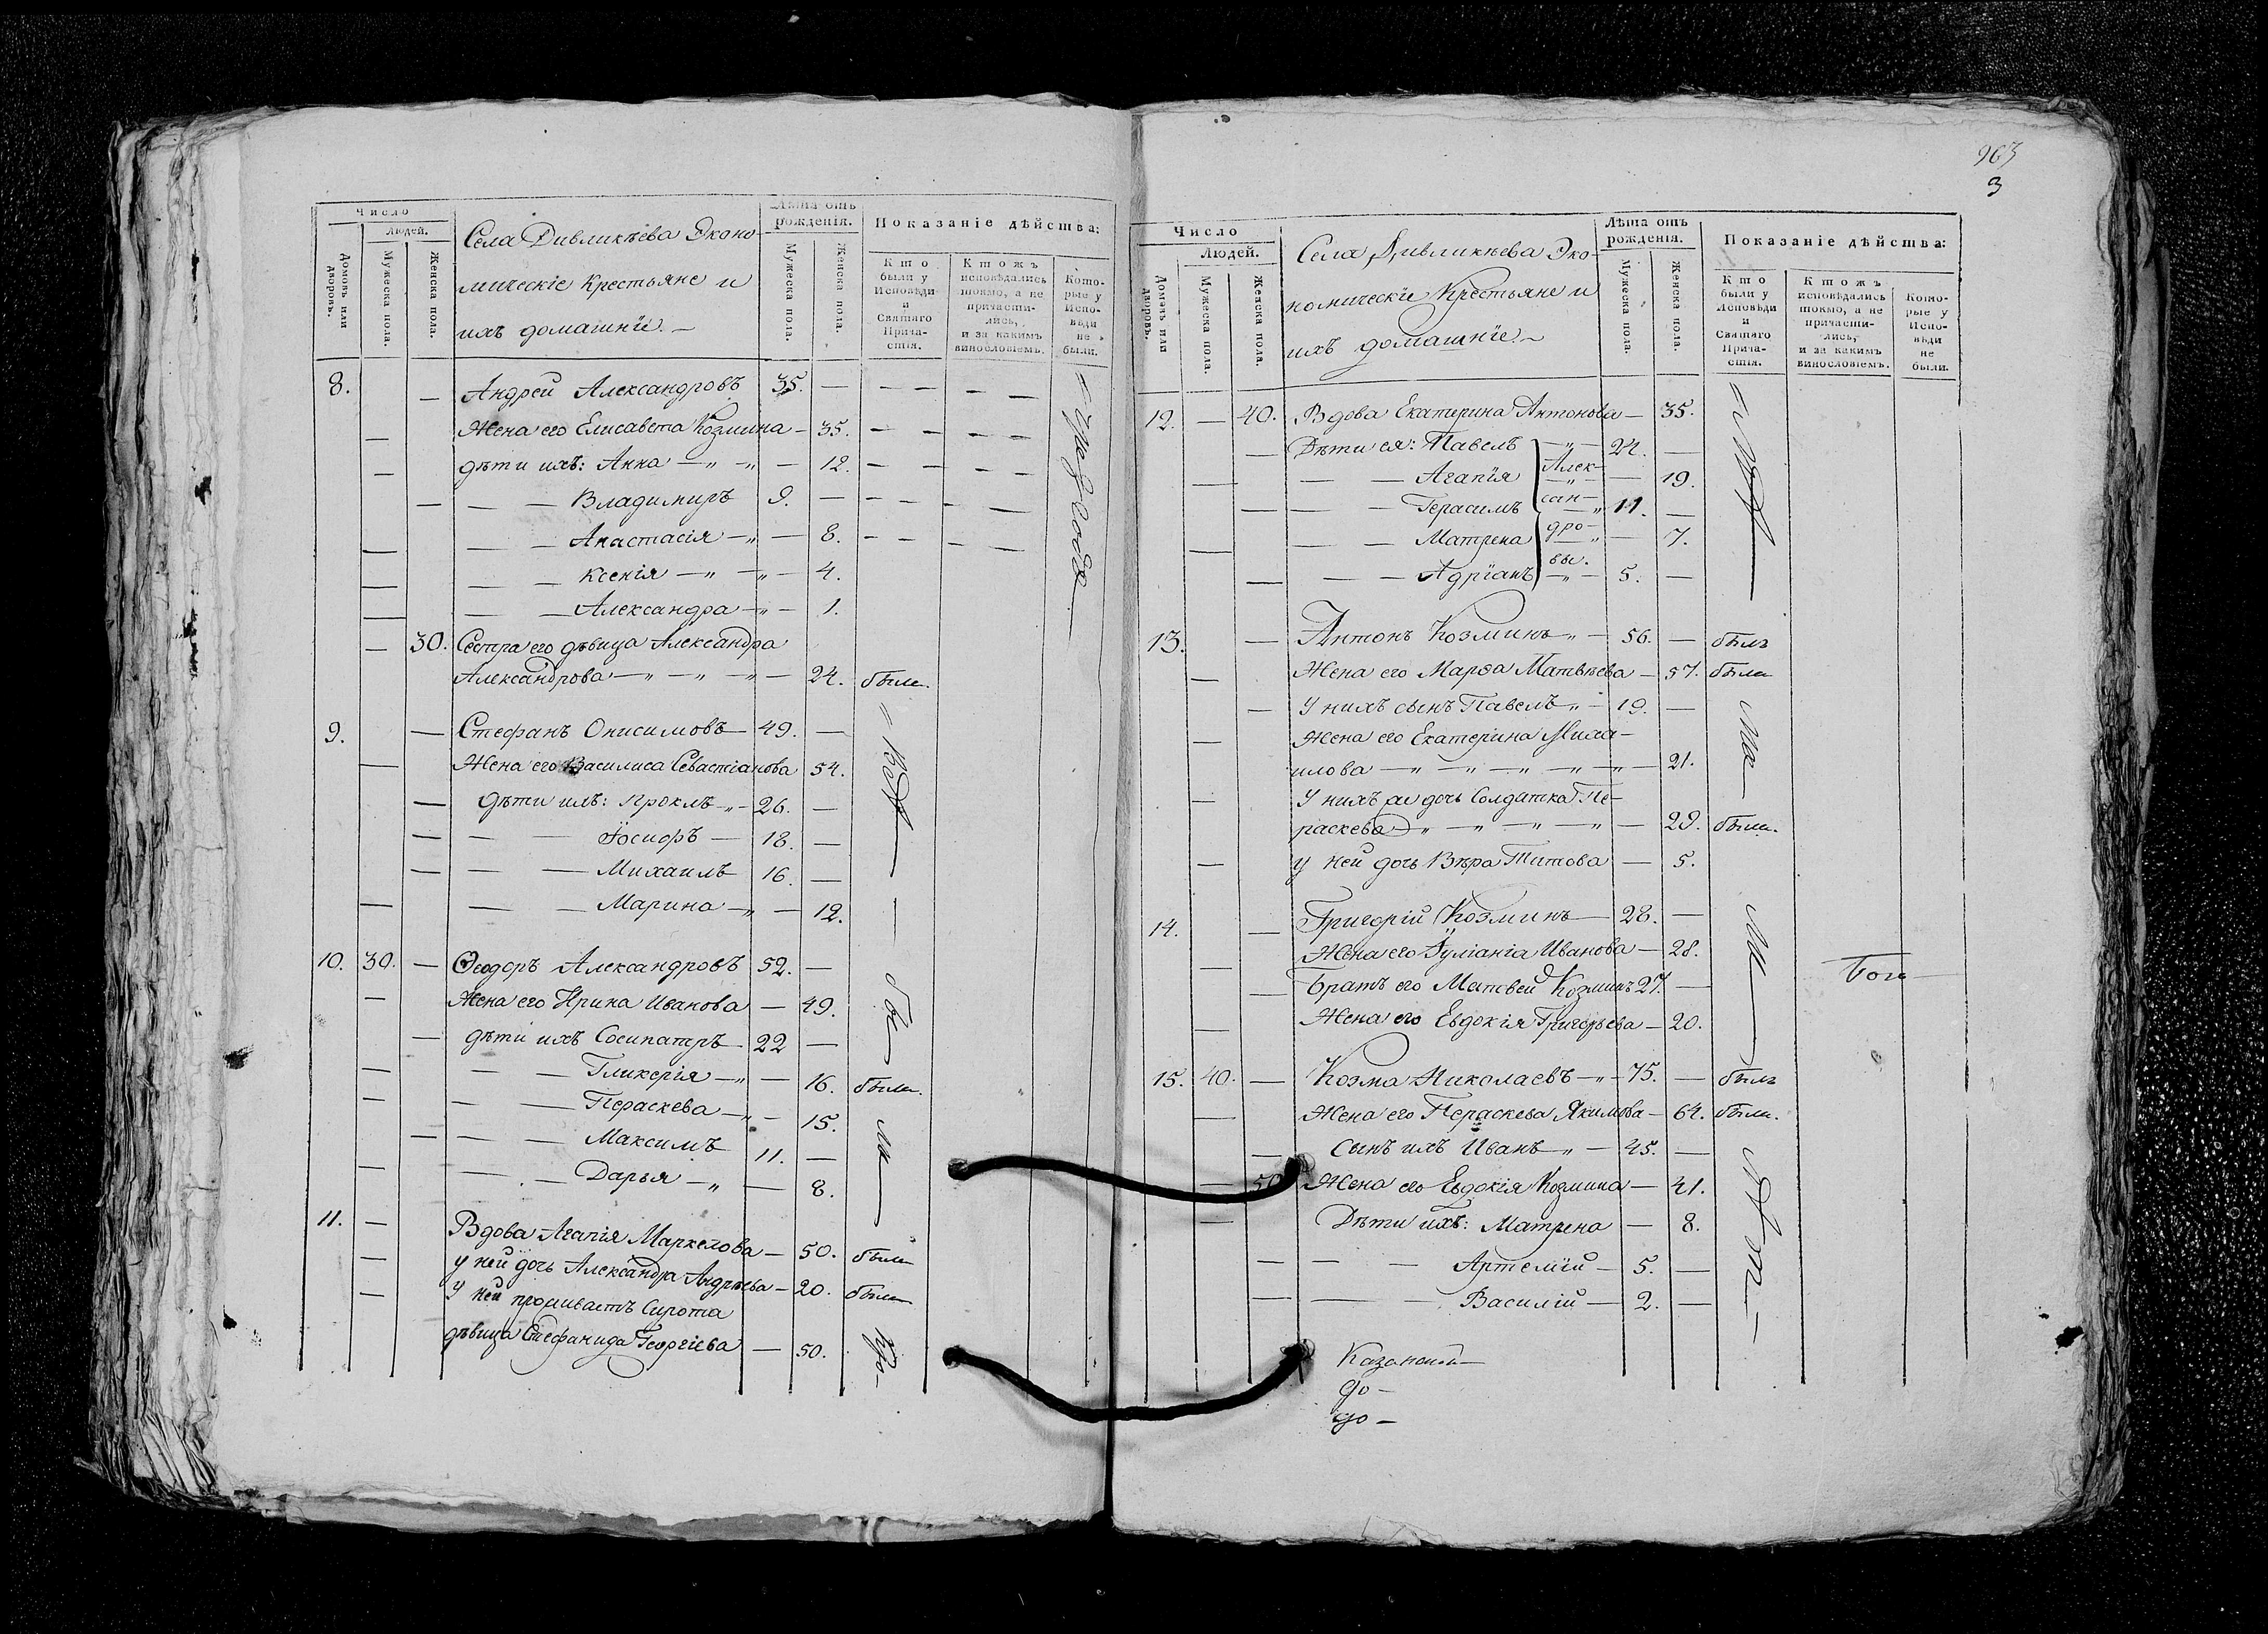 Число
Людей.
Домовъ или дворовъ.
Мужеска пола.
Женска пола.
Села Дивликѣева Эконо-
мическіе Крестьяне и
ихъ домашніе. —
Лѣта отъ рожденія.
Мужеска пола.
Женска пола.
Показаніе дѣйства:
Кто были у Исповѣди и Святаго Причастія.
Ктожъ исповѣдались токмо, а не причастились, и за какимъ винословіемъ.
Которые у Исповѣди не были.
8. — Андрей Александровъ 35. —
— Жена его Елисавета Козмина — 35.
— дѣти ихъ: Анна — 12.
— Владимиръ 9. —
— Анастасія — 8.
— Ксенія — 4.
— Александра — 1.
— 30. Сестра его дѣвица Александра
Александрова — 24. была.
9. — Стефанъ Онисимовъ — 49. —
— Жена его Василиса Севастіанова 54.
— дѣти ихъ: Проклъ — 26. —
— Іосифъ — 18. —
— Михаилъ 16. —
— Марина — 12.
10. 30. — Ѳеодоръ Александровъ 52. —
— Жена его Ирина Иванова — 49.
— дѣти ихъ Сосипатръ 22 —
— Гликерія — 16. была.
— Параскева — 15.
— Максимъ 11. —
— Дарья — 8.
11. — Вдова Агапія Маркелова — 50. была
— у ней дочь Александра Андрѣева — 20. была
— У ней проживаетъ Сирота
дѣвица Стефанида Георгіева — 50.
963
3
Число
Людей.
Домовъ или дворовъ.
Мужеска пола.
Женска пола.
Села Дивликѣева Эко-
номическіе Крестьяне и
ихъ домашніе. —
Лѣта отъ рожденія.
Мужеска пола.
Женска пола.
Показаніе дѣйства:
Кто были у Исповѣди и Святаго Причастія.
Ктожъ исповѣдались токмо, а не причастились, и за какимъ винословіемъ.
Которые у Исповѣди не были.
12. — 40. Вдова Екатерина Антонова — 35.
— Дѣти ея: Павелъ — 24. —
— Агапія Алек- — 19.
— Герасимъ сан- 11. —
— Матрена дро- — 7.
— Адріанъ вы. 5. —
13. — Антонъ Козминъ — 56. — былъ
— Жена его Марѳа Матвѣева — 57. была
— У нихъ сынъ Павелъ — 19. —
— Жена его Екатерина Миха-
илова — 21.
— У нихъ же дочь Солдатка Пе-
раскева — 29. была.
— у ней дочь Вѣра Титова — 5.
14. — Григорій Козминъ — 28. —
— Жена его Іуліанія Иванова — 28.
— Братъ его Матвей Козминъ 27. —
— Жена его Евдокія Григорьева — 20.
15. 40. — Козма Николаевъ — 75. — былъ
— Жена его Пераскева Якимова — 64. была.
— Сынъ ихъ Иванъ — 45. —
— 50 Жена его Евдокія Козмина — 41.
— Дѣти ихъ: Матрена — 8.
— Артемій — 5. —
— Василій — 2. —